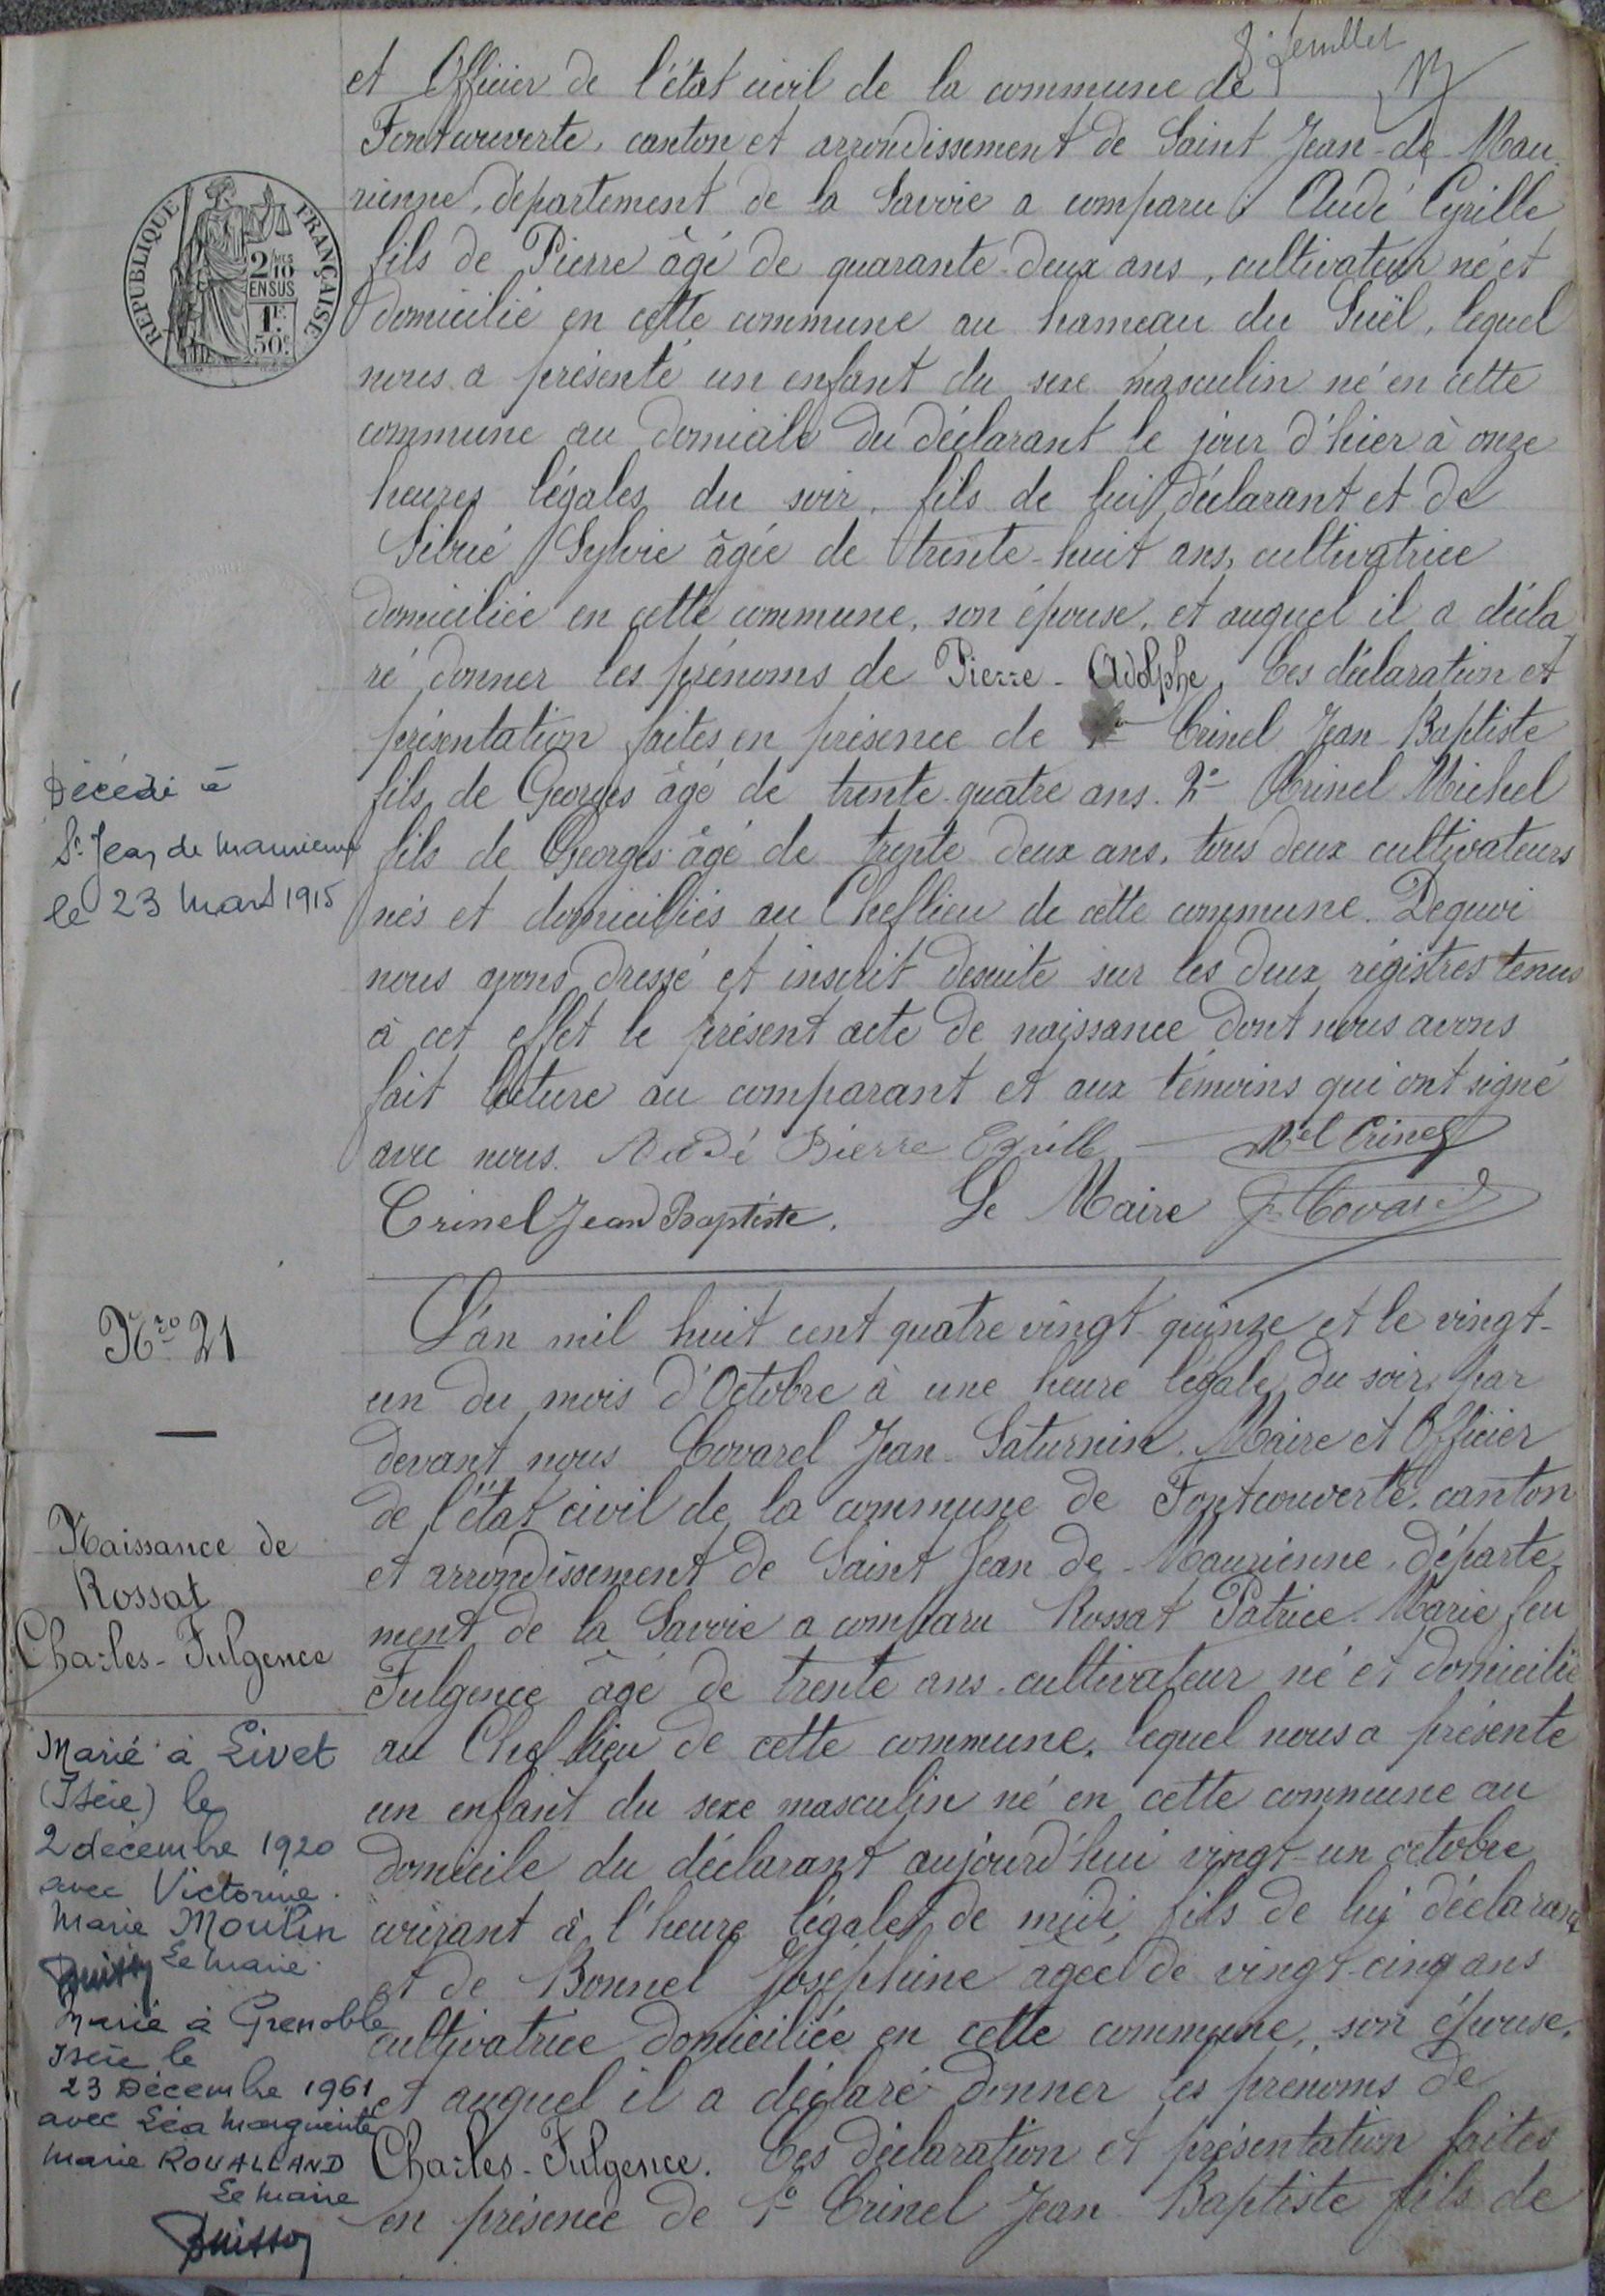 8e feuillet
et Officier de l'état civil de la commune de
Fontcouverte, canton et arrondissement de Saint Jean-de-Mau
rienne, département de la Savoie a comparu : Audé Cyrille
fils de Pierre âgé de quarante-deux ans, cultivateur né et
domicilié en cette commune au hameau du Suël, lequel
nous a présenté un enfant du sexe masculin né en cette
commune au domicile du déclarant le jour d'hier à onze
heures légales du soir, fils de lui déclarant et de
Sibué Sylvie âgée de trente-huit ans, cultivatrice
domiciliée en cette commune, son épouse, et auquel il a décla
ré donner les prénoms de Pierre-Adolphe. Ces déclaration et
présentation faites en présence de 1° Crinel Jean-Baptiste
fils de Georges âgé de trente-quatre ans. 2° Crinel Michel
fils de Georges âgé de trente deux ans, tous deux cultivateurs
nés et domiciliés au Cheflieu de cette commune. Dequoi
nous avons dressé et inscrit desuite sur les deux régistres tenus
à cet effet le présent acte de naissance dont nous avons
fait lecture au comparant et aux témoins qui ont signé
avec nous. Audé Pierre Cyrille Mel Crinel
Crinel Jean Baptiste. Le Maire J. Covarel
REPUBLIQUE FRANÇAISE
2/10
EN SUS
1F.
50c.
Décédé à
St Jean de Maurienne
le 23 Mars 1915
Nro 21
Naissance de
Rossat
Charles-Fulgence
Marié à Livet
(Isère) le
2 décembre 1920
avec Victorine
Marie Moulin
Le Maire
Buisson
Marié à Grenoble
Isère le
23 Décembre 1961
avec Léa Marguerite
Marie ROUALLAND
Le Maire
Buisson
L'an mil huit cent quatre vingt-quinze et le vingt-
un du mois d'Octobre à une heure légale du soir, par
devant nous Covarel Jean-Saturnin. Maire et Officier
de l'état civil de la commune de Fontcouverte, canton
et arrondissement de Saint Jean de-Maurienne, départe
ment de la Savoie a comparu Rossat Patrice-Marie feu
Fulgence âgé de trente ans, cultivateur né et domicilié
au Cheflieu de cette commune, lequel nous a présenté
un enfant du sexe masculin né en cette commune au
domicile du déclarant aujourd'hui vingt-un octobre
courant à l'heure légales de midi, fils de lui déclarant
et de Bonnel Joséphine âgée de vingt-cinq ans
cultivatrice domiciliée en cette commune, son épouse,
et auquel il a déclaré donner les prénoms de
Charles-Fulgence. Ces déclaration et présentation faites
en présence de 1° Crinel Jean Baptiste fils de